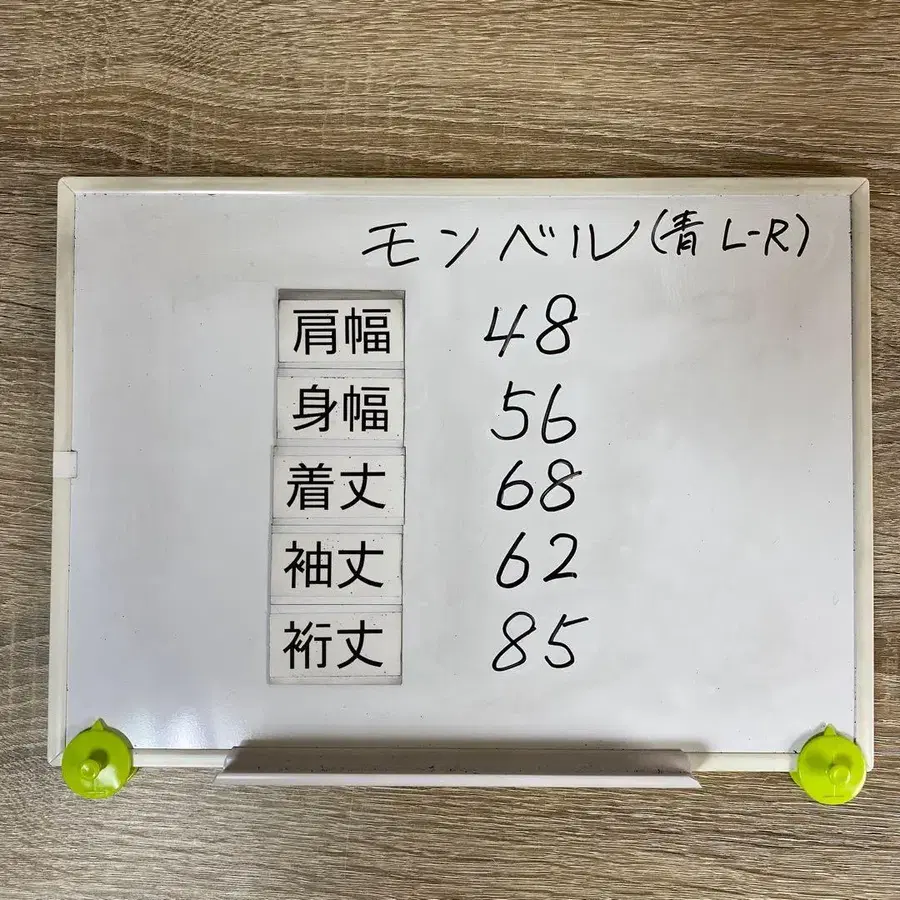 モンベル(青 L-R)
肩幅 48
身幅 56
着丈 68
袖丈 62
裄丈 85